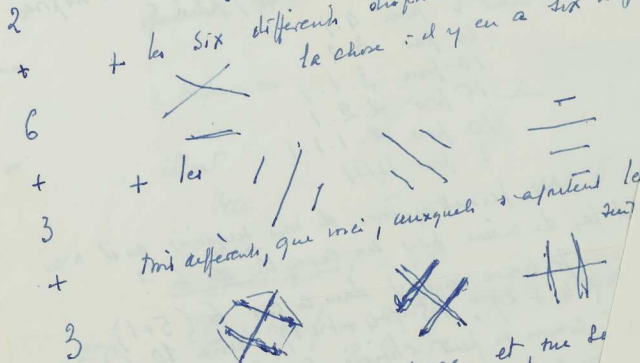 2
+ + les six différents
la chose : il y en a six
6
+ + les
3
trois différents, que voici, auxquels s'ajoutent les
+
3
et, rue